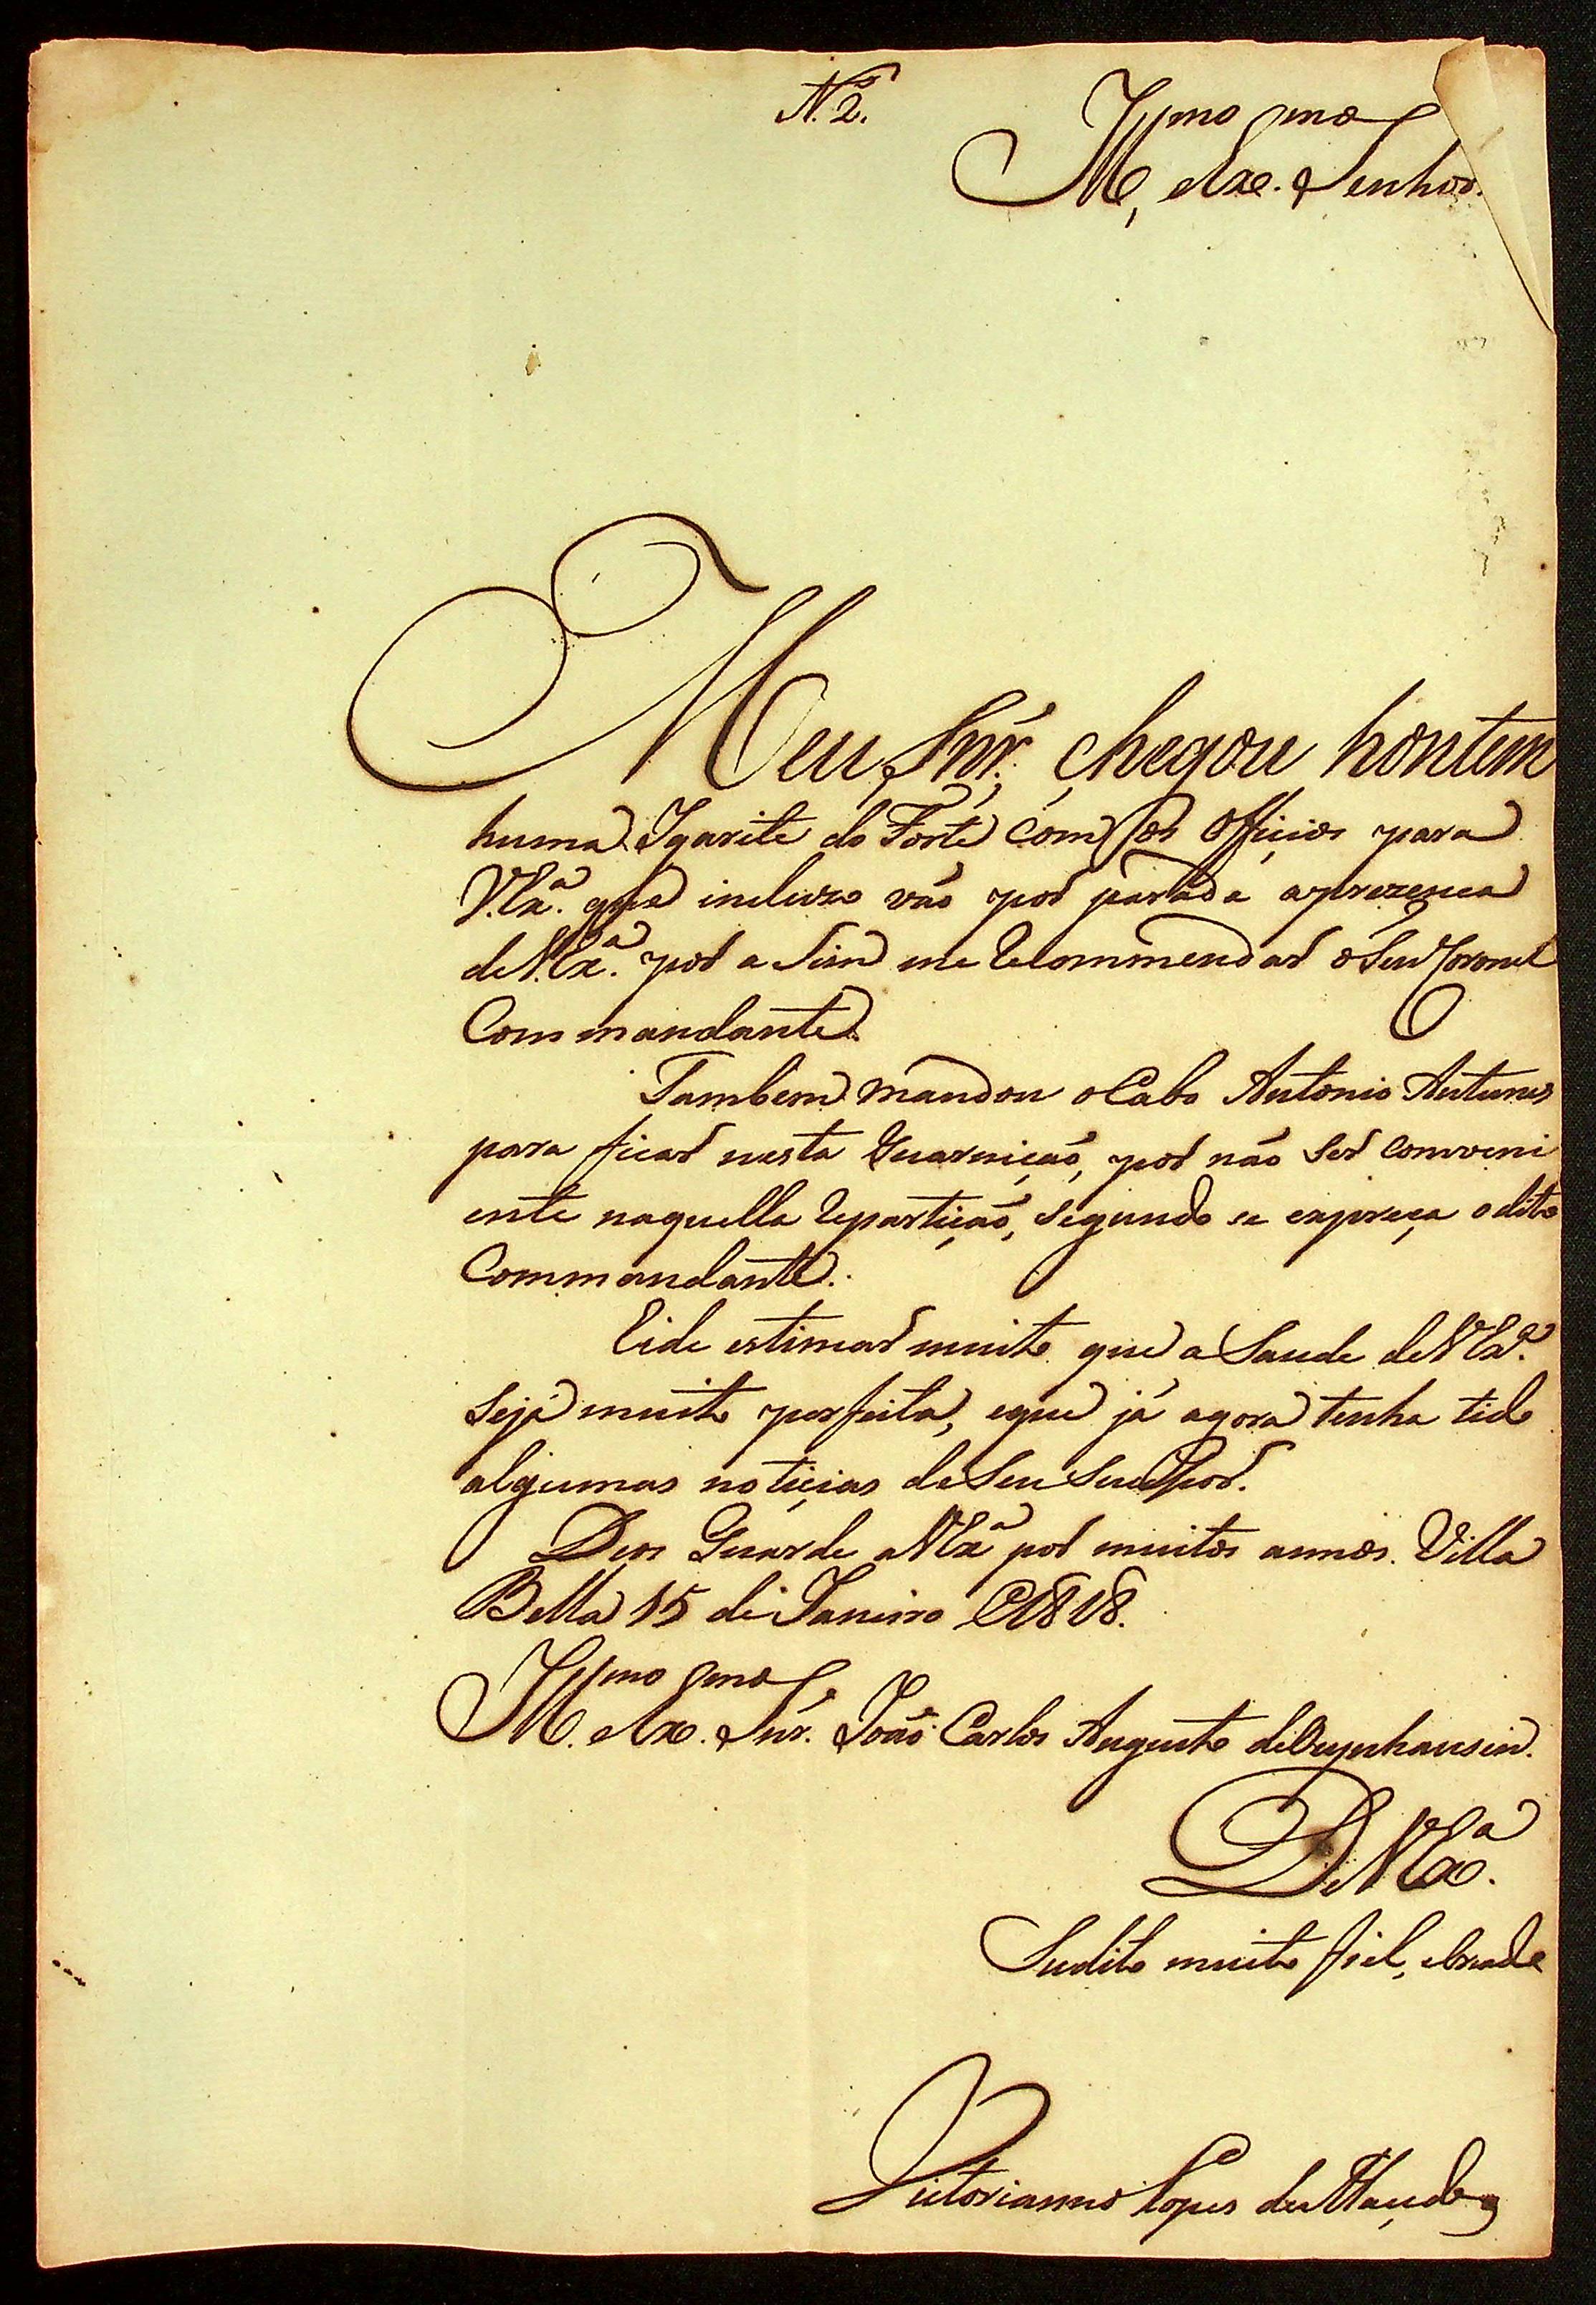 N.º 2.
Ill.mo, e Ex.mo Senhor.
Meu Snr.; chegou hontem
huma Igarite do Forte com os Officios para
V. Ex.ª que incluzo vão por parada aprezença
de V. Ex.ª por a sim me recommendar o Seu Coronel
Commandante.
Tambem mandou o Cabo Antonio Antunes
para ficar nesta Guarnição, por não ser conveni
ente naquella repartição, segundo se expreça o dito
Commandante.
Eide estimar muito que a Saude de V. Ex.ª
seja muito perfeita, eque já agora tenha tido
algumas noticias de Seu Sucessor.
Deos Guarde a V. Ex.ª por muitos annos. Villa
Bella 15 de Janeiro de 1818.
Ill.mo e Ex.mo Snr. João Carlos Augusto de Oeynhausen.
De V. Ex.ª
Sudito muito fiel, e
Victorianno Lopes de